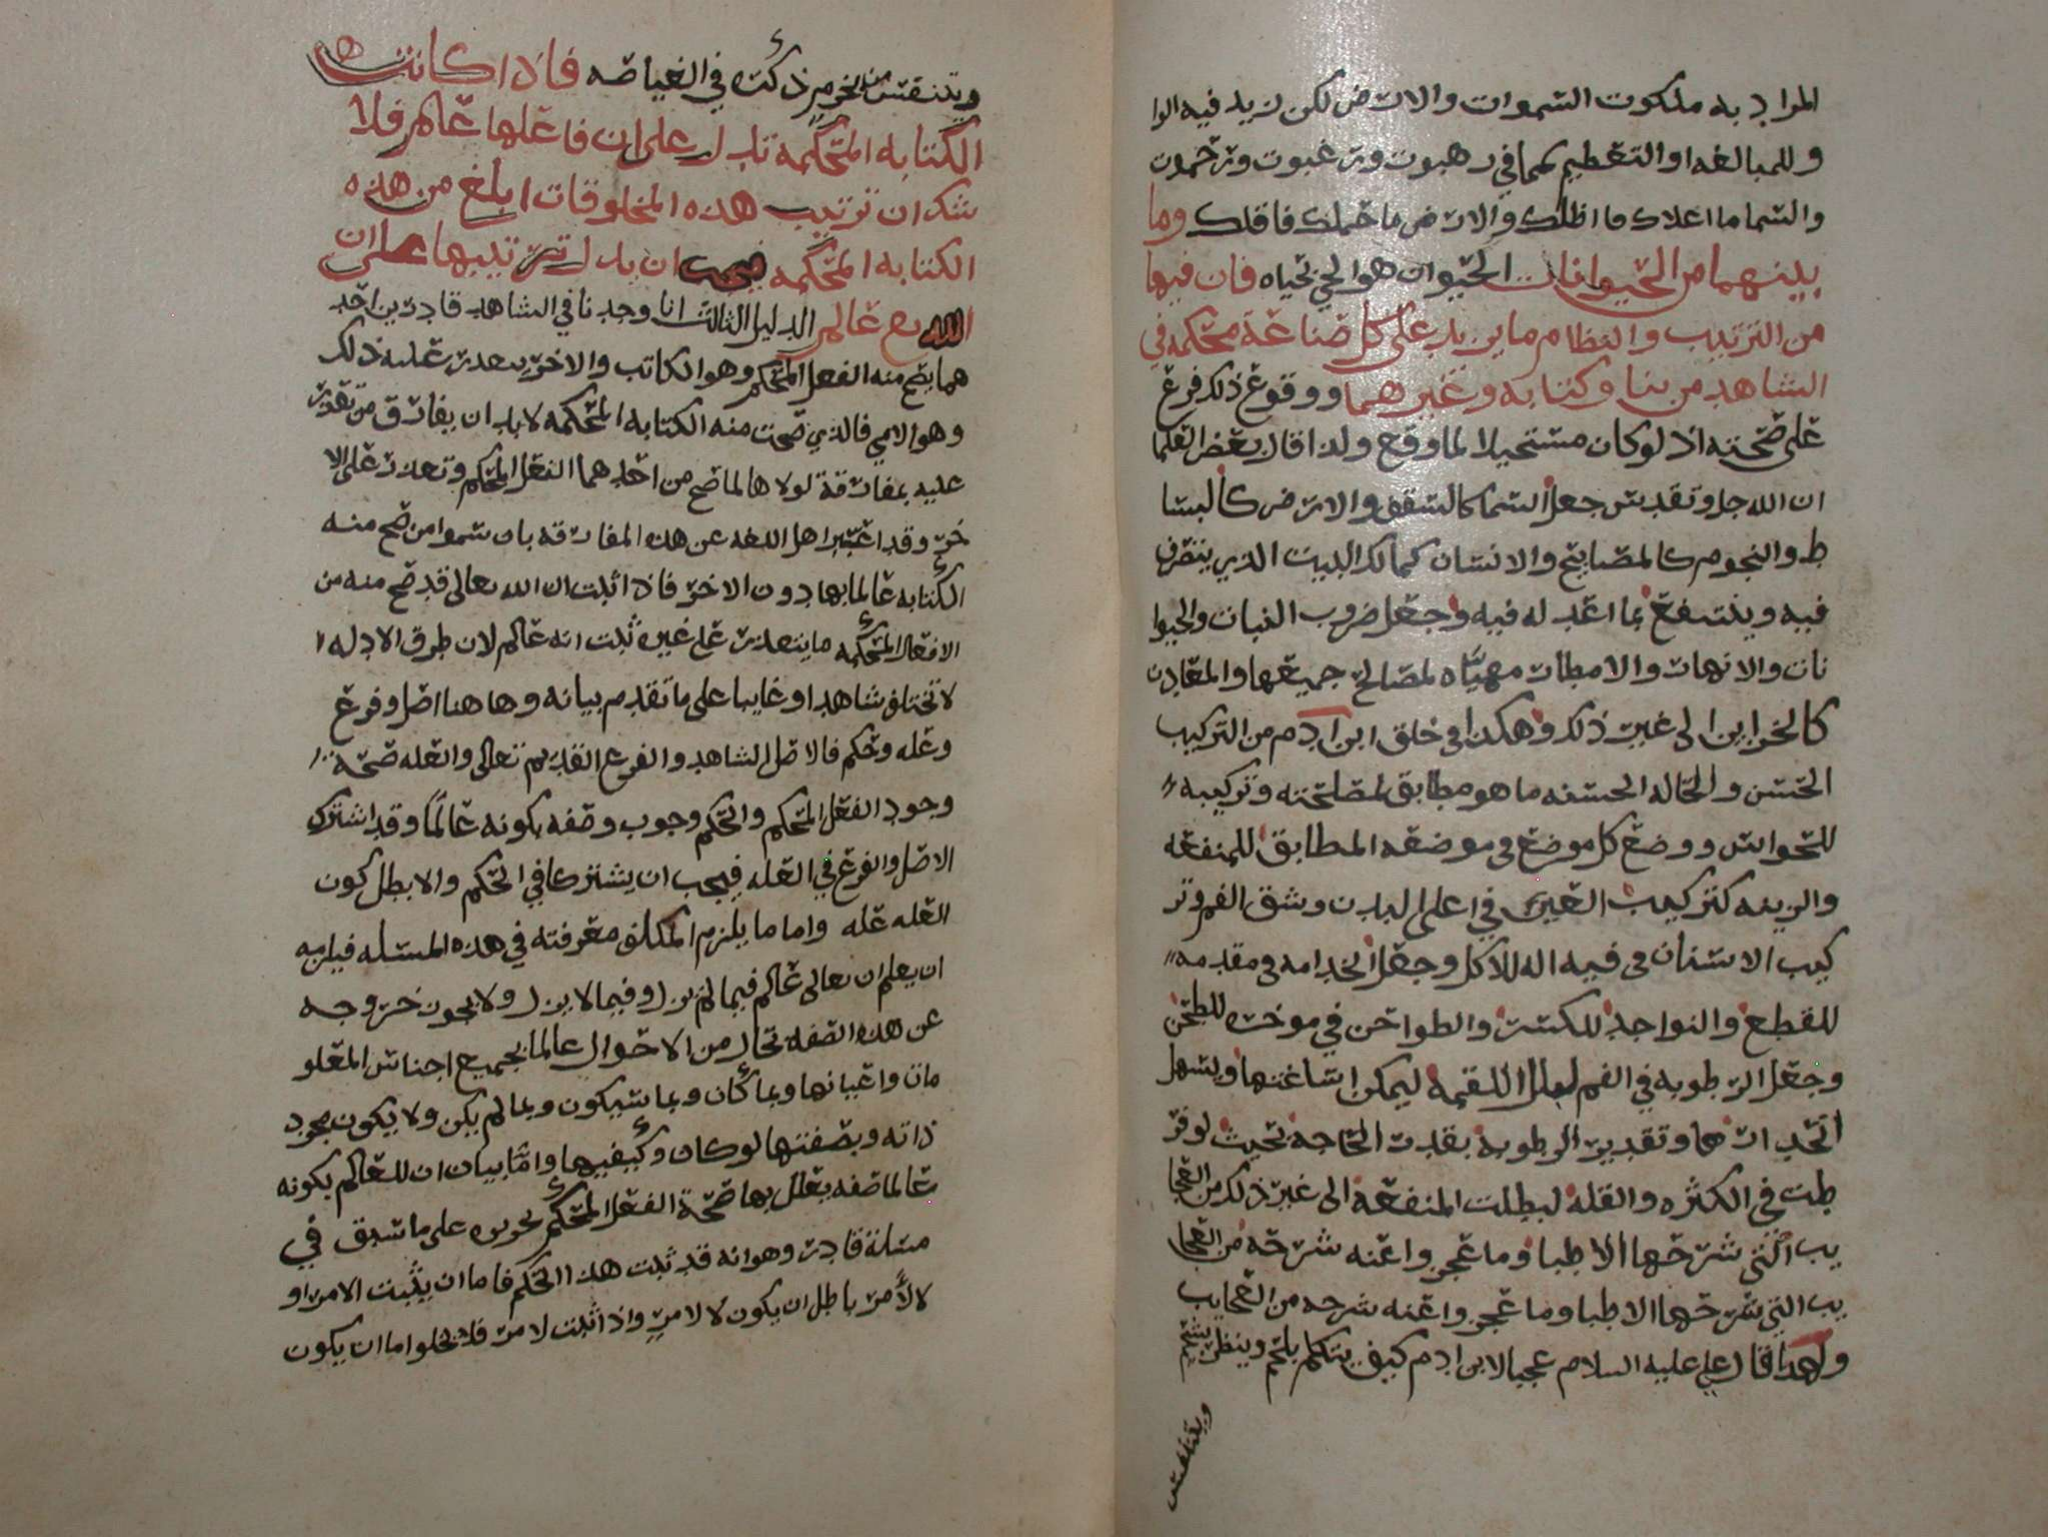 المراد به ملكوت السموات والارض لكن زيد فيه الوا
و للمبالغه او التعظيم كما في رهبوت ورغبوت ورحموت
والسما ما اعلاك فاظلك والارض ما حملك فاقلك وما
بينهما من الحيوانات الحيوان هو الحي بحياه فان فيها
من الترتيب والنظام ما يزيد على كل صناعة محكمه في
الشاهد من بنا وكتابه وغيرهما ووقوع ذلك فرع
على صحته اذ لو كان مستحيلا لما وقع ولذا قال بعض العلما
ان الله جل وتقدس جعل السما كالسقف والارض كالبسا
ط والنجوم كالمصابيح والانسان كمالك البيت الذي يتصرف
فيه وينتفع بما اعد له فيه وجعل ضروب النبات والحيوا
نات والانهار والامطار مهيّاه لمصالح جميعها والمعادن
كالخزاين الى غير ذلك وهكذا في خلق ابن ادم من التركيب
الحسن والحاله الحسنه ما هو مطابق لمصلحته وتركيبه
للحواس ووضع كل موضع في موضعه المطابق للمنفعه
والزينه كتركيب العين في اعلى البدن وشق الفم وتر
كيب الاسنان في فيه اله للاكل وجعل الحداده في مقدمه
للقطع والنواجذ للكسر والطواحن في موخره للطحن
وجعل الرطوبه في الفم لبل اللقمه ليمكن اساغتها ويسهل
انحدارها وتقدير الرطوبة بقدر الحاجه بحيث لو فر
طت في الكثره والقله لبطلت المنفعه الى غير ذلك من العجا
يب التي شرحها الاطبا وما عجزوا عنه شرحه من العجا
يب التي شرحها الاطبا وما عجزوا عنه شرحه من العجايب
ولهذا قال علي عليه السلام عجبا لابن ادم كيف يتكلم بلحم وينظر بشحم
ويتنفس
ويتنفس من خرم ذكره في الغياصه فاذا كانت
الكتابه المحكمه تدل على ان فاعلها عالم فلا
شك ان ترتيب هذه المخلوقات ابلغ من هذه
الكتابه المحكمه فيجب ان يدل ترتيبها على ان
الله تع عالم الدليل الثالث انا وجدنا في الشاهد قادرين احد
هما يصح منه الفعل المحكم وهو الكاتب والاخر يتعذر عليه ذلك
وهو الامي فالذي صحت منه الكتابه المحكمه لابد ان يفارق من تعذر
عليه بمفارقة لولاها لما صح من احدهما الفعل المحكم وتعذر على الا
خر وقد اعتبر اهل اللغه عن هذه المفارقه بان سموا من صح منه
الكتابه عالما بها دون الاخر فاذا ثبت ان الله تعالى قد صح منه من
الافعال المحكمه ما يتعذر على غيره ثبت انه عالم لان طرق الادله ا
لا تختلف شاهدا وغايبا على ما تقدم بيانه وهاهنا اصل وفرع
وعله وحكم فالاصل الشاهد والفرع القديم تعالى والعله صحة
وجود الفعل المحكم والحكم وجوب وصفه بكونه عالمًا وقد اشترك
الاصل والفرع في العله فيجب ان يشتركا في الحكم والا بطل كون
العله عله واما ما يلزم المكلف معرفته في هذه المسئله فيلزمه
ان يعلم ان تعالى عالم فيما لم يزل وفيما لا يزل ولا يجوز خروجه
عن هذه الصفه بحال من الاحوال عالما بجميع اجناس المعلو
مات واعيانها وبما كان وبما سيكون وبما لم يكن ولا يكون بمجرد
ذاته وبصفتها لو كان وكيفيها وامّا بيان ان للعالم بكونه
عالما صفه يعلل بها صحة الفعل المحكم تحريره على ما سبق في
مسئلة قادر وهو انه قد ثبت هذا الحكم فاما ان يثبت لامر او
لا لأمر باطل ان يكون لا لامرٍ واذا ثبت لامر فلا يخلوا اما ان يكون